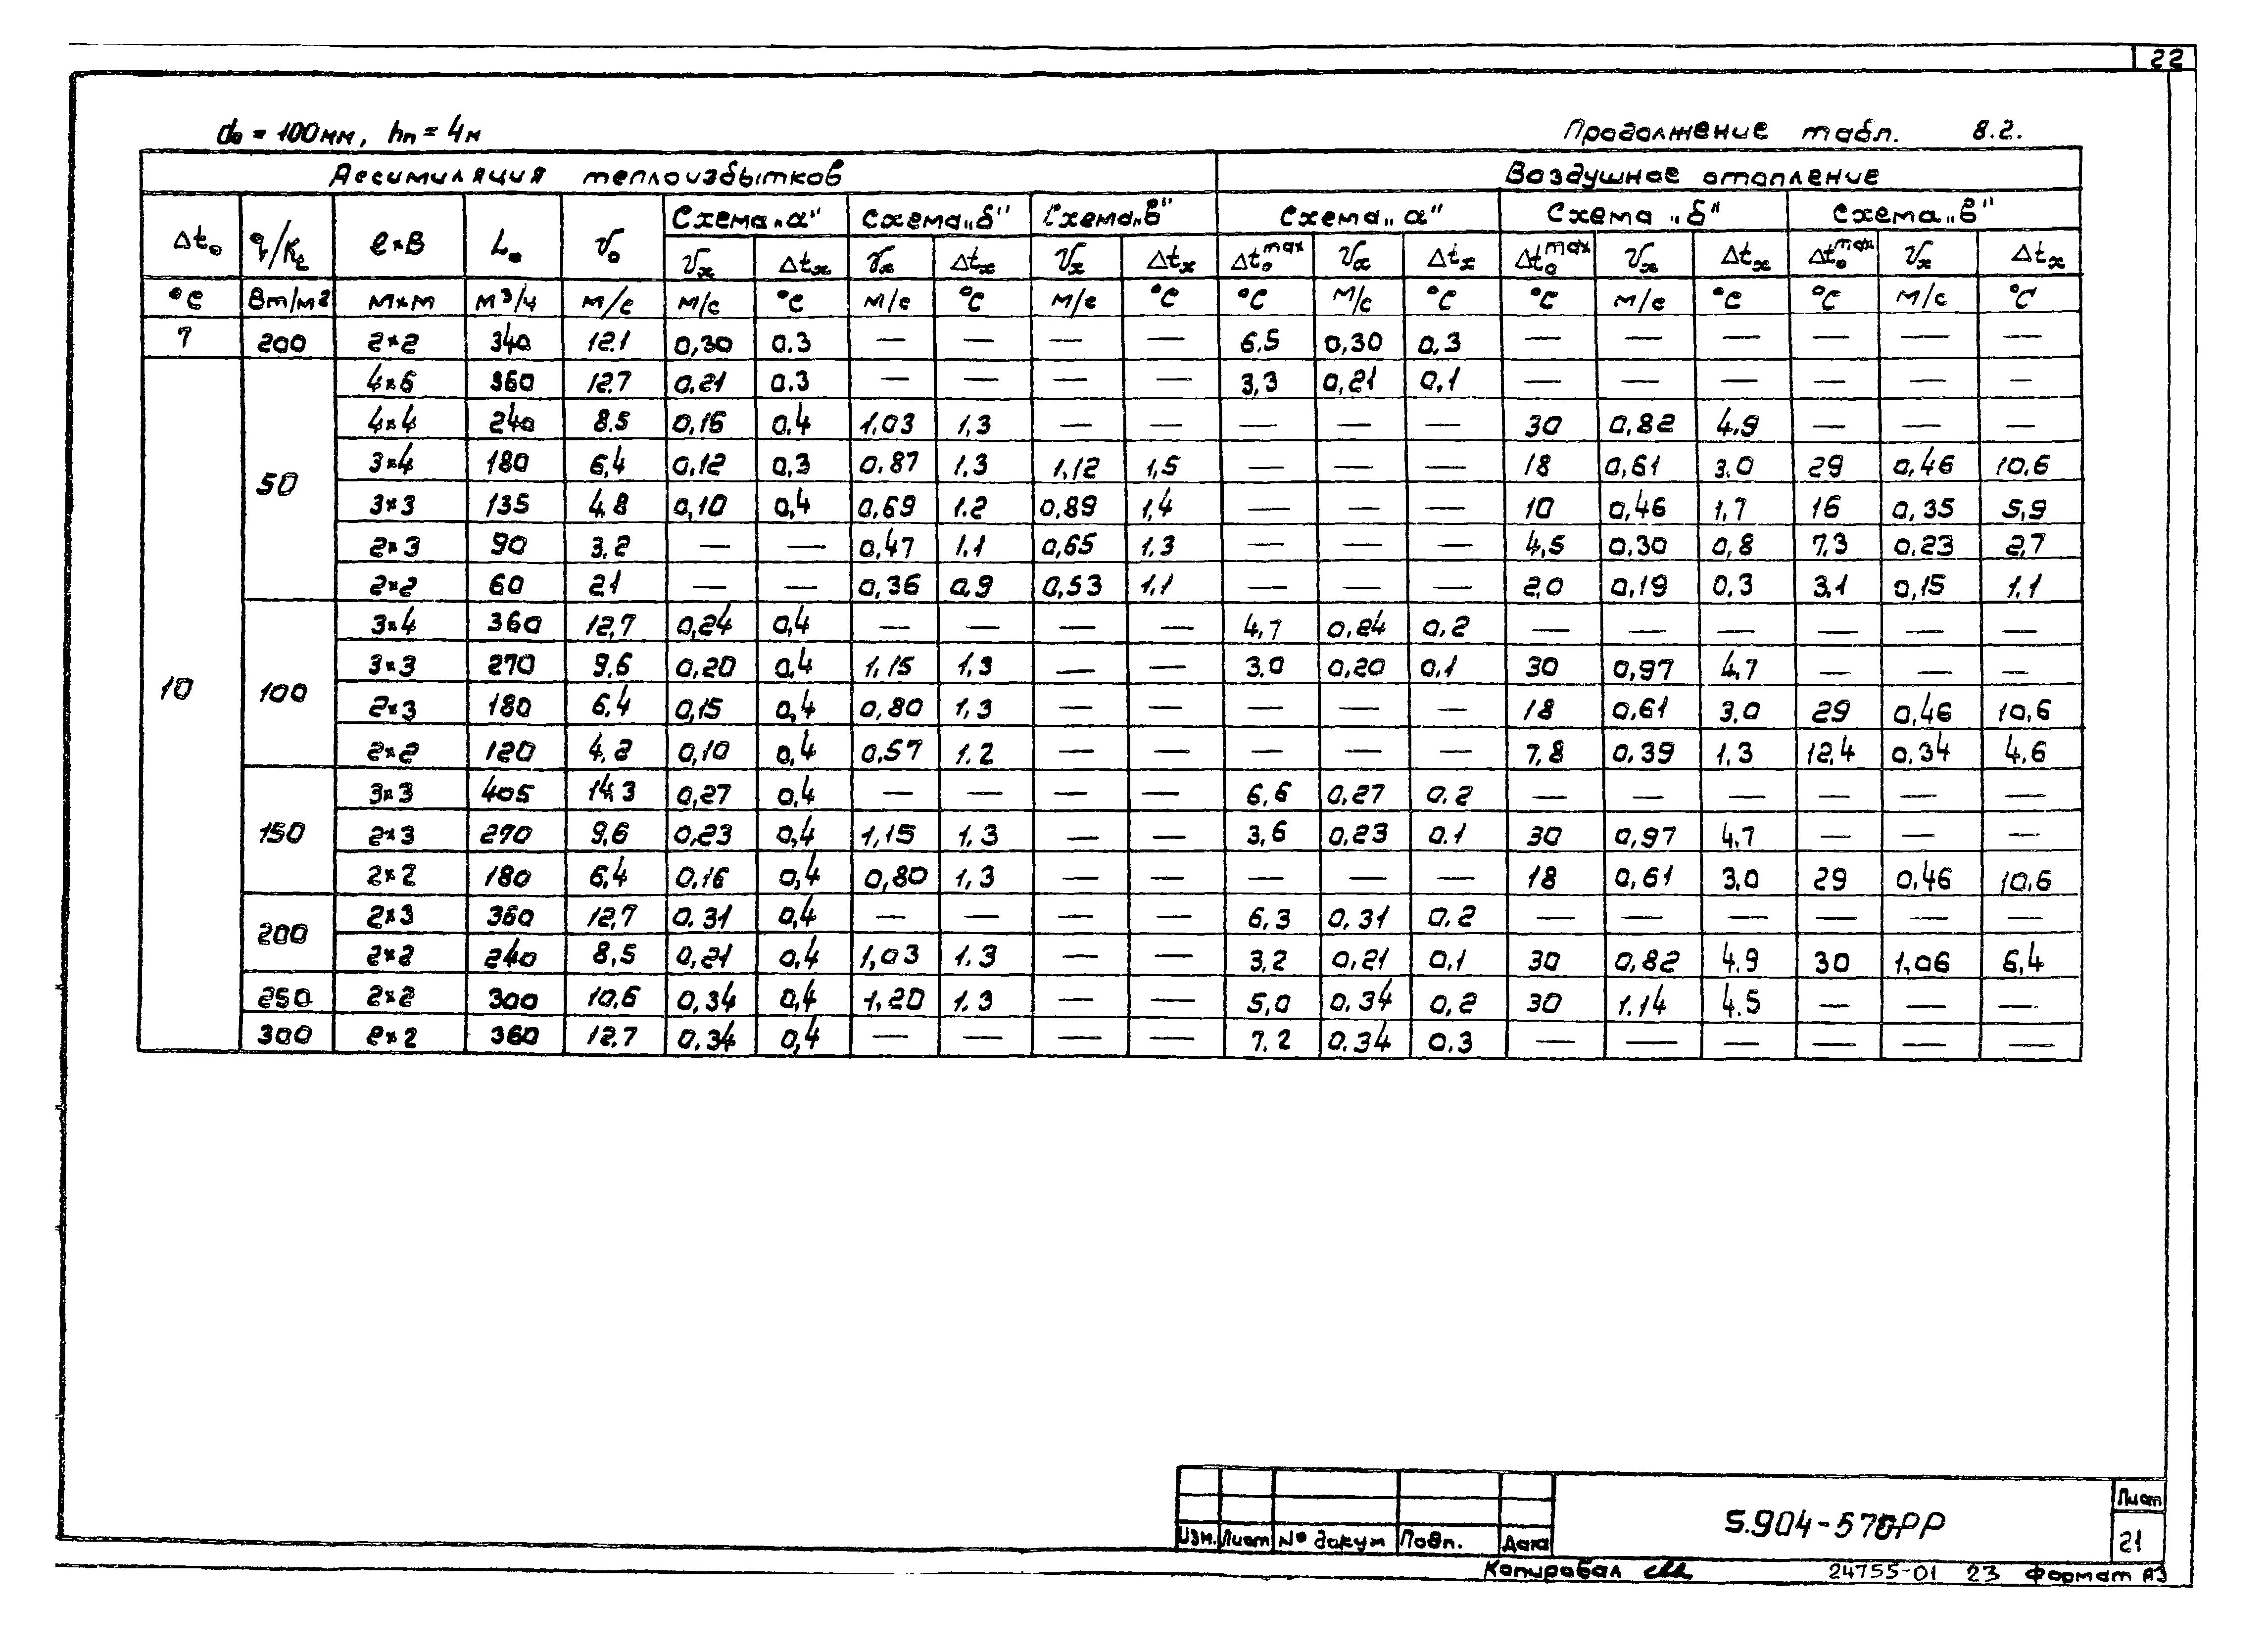 22
d₀ = 100мм, hп = 4м
Продолжение табл. 8.2.
Ассимиляция теплоизбытков Воздушное отопление
Схема „а" Схема „б" Схема „в" Схема „а" Схема „б" Схема „в"
Δt₀ q/Kt ℓ×B L₀ V₀ Vx Δtx Vx Δtx Vx Δtx Δt₀max Vx Δtx Δt₀max Vx Δtx Δt₀max Vx Δtx
°С Вт/м² м×м м³/ч м/с м/с °С м/с °С м/с °С °С м/с °С °С м/с °С °С м/с °С
7 200 2×2 340 12.1 0,30 0.3 — — — — 6.5 0,30 0,3 — — — — — —
10 50 4×6 360 12.7 0,21 0.3 — — — — 3,3 0,21 0,1 — — — — — —
4×4 240 8.5 0,16 0,4 1,03 1,3 — — — — — 30 0,82 4,9 — — —
3×4 180 6,4 0,12 0,3 0,87 1.3 1,12 1,5 — — — 18 0,61 3.0 29 0,46 10,6
3×3 135 4,8 0,10 0,4 0,69 1.2 0,89 1,4 — — — 10 0,46 1,7 16 0,35 5,9
2×3 90 3,2 — — 0,47 1.1 0,65 1.3 — — — 4,5 0,30 0,8 7,3 0,23 2,7
2×2 60 2.1 — — 0,36 0,9 0,53 1.1 — — — 2,0 0,19 0.3 3,1 0,15 1.1
100 3×4 360 12,7 0,24 0,4 — — — — 4,7 0,24 0,2 — — — — — —
3×3 270 9,6 0,20 0,4 1,15 1,3 — — 3.0 0,20 0,1 30 0,97 4,7 — — —
2×3 180 6.4 0,15 0,4 0,80 1,3 — — — — — 18 0,61 3.0 29 0,46 10,6
2×2 120 4,2 0,10 0,4 0,57 1.2 — — — — — 7,8 0,39 1,3 12,4 0.34 4,6
150 3×3 405 14,3 0,27 0,4 — — — — 6,6 0,27 0.2 — — — — — —
2×3 270 9,6 0,23 0,4 1,15 1,3 — — 3,6 0,23 0.1 30 0,97 4,7 — — —
2×2 180 6,4 0,16 0,4 0,80 1,3 — — — — — 18 0,61 3,0 29 0,46 10,6
200 2×3 360 12,7 0.31 0,4 — — — — 6,3 0,31 0.2 — — — — — —
2×2 240 8,5 0,21 0,4 1,03 1.3 — — 3,2 0,21 0.1 30 0,82 4.9 30 1,06 6,4
250 2×2 300 10,6 0,34 0,4 1,20 1.3 — — 5,0 0.34 0,2 30 1.14 4.5 — — —
300 2×2 360 12.7 0.34 0,4 — — — — 7.2 0.34 0.3 — — — — — —
Изм. Лист № докум Подп. Дата
5.904-57ОРР
Лист
21
Копировал
24755-01 23 Формат А3